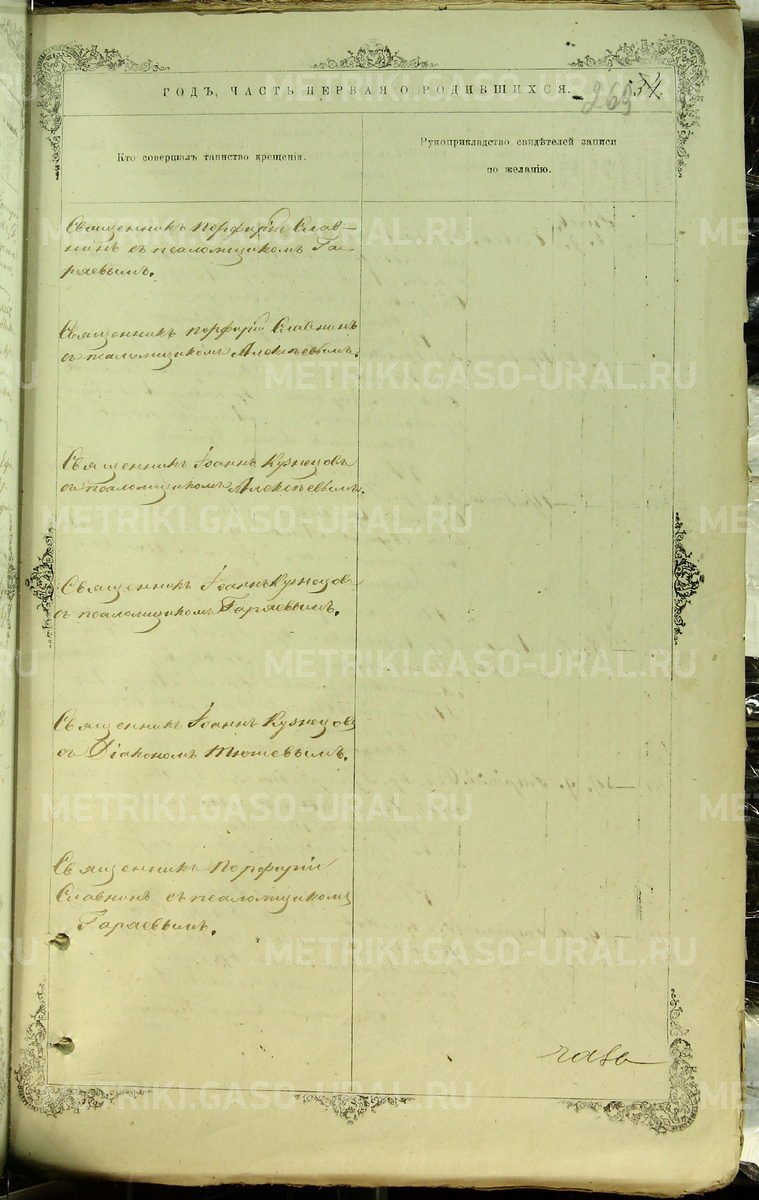 ГОДЪ, ЧАСТЬ ПЕРВАЯ О РОДИВШИХСЯ.
269
54.
Кто совершалъ таинство крещенія.
Рукоприкладство свидѣтелей записи
по желанію.
Священникъ Порфирій Слав-
нинъ съ псаломщикомъ Га-
ряевымъ.
Священникъ Порфирій Славнинъ
съ псаломщикомъ Алексѣевымъ.
Священникъ Іоаннъ Кузнецовъ
съ псаломщикомъ Алексѣевымъ.
Священникъ Іоаннъ Кузнецовъ
съ псаломщикомъ Гаряевымъ.
Священникъ Іоаннъ Кузнецовъ
съ Діакономъ Тюшевымъ.
Священникъ Порфирій
Славнинъ съ псаломщикомъ
Гаряевымъ.
METRIKI.GASO-URAL.RU